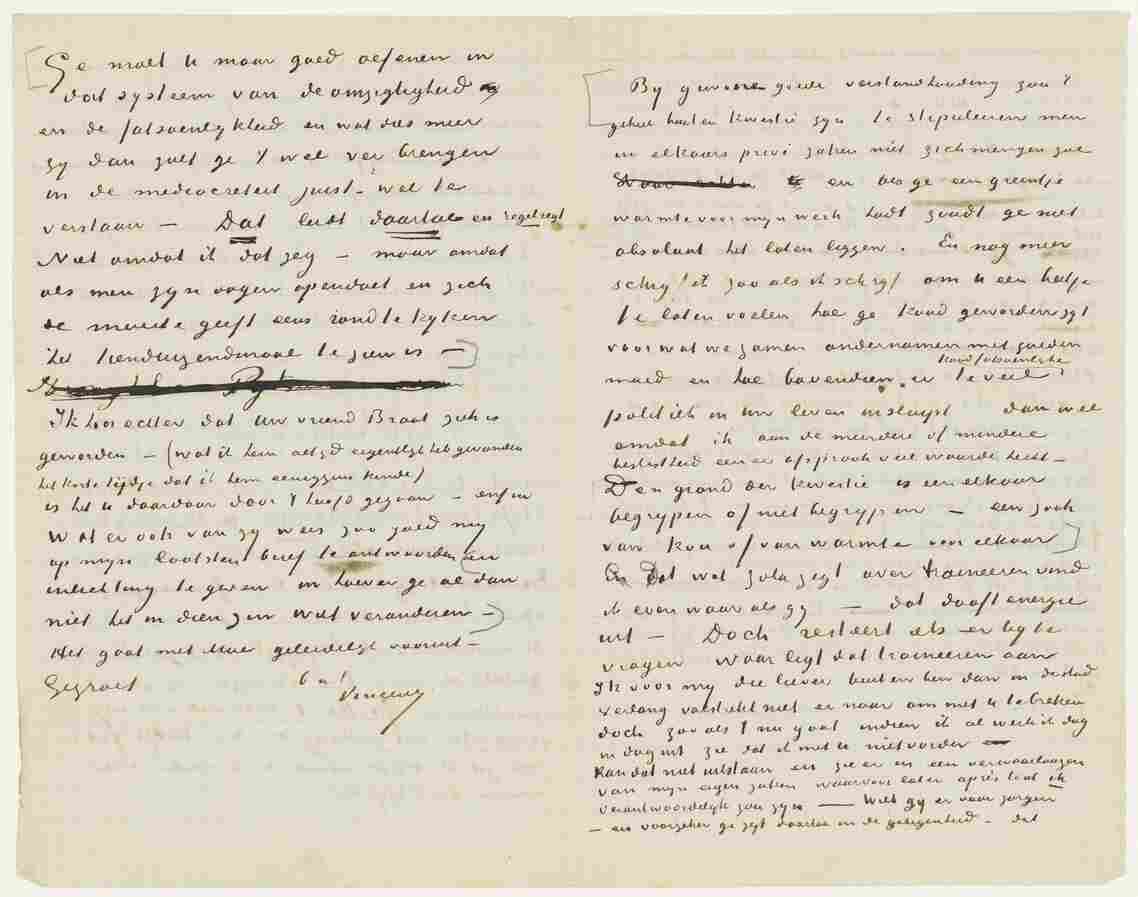 Ge moet U maar goed oefenen in
dat systeem van de omzigtigheid
en de fatsoenlykheid en wat dies meer
zy dan zult ge 't wel ver brengen
in de mediocreteit juist wel te
verstaan — Dat leidt daartoe en regelregt
Niet omdat ik dat zeg — maar omdat
als men zyn oogen opendoet en zich
de moeite geeft eens rond te kyken
het tienduizendmaal te zien is —
Ik hoor echter dat Uw vriend Braat ziek is
geworden — (wat ik hem altyd eigentlyk heb gevonden
het korte tijdje dat ik hem eenigzins kende)
is het U daardoor door 't hoofd gegaan — enfin
Wat er ook van zy wees zoo goed my
op myn laatsten brief te antwoorden (en
inlichting te geven in hoever ge al dan
niet het in dien zin wilt veranderen —)
Het gaat met Moe geleidelyk vooruit —
Gegroet b. à t.
Vincent
By gewone goede verstandhouding zou 't
geheel buiten kwestie zyn te stipuleeren men
in elkaars privé zaken niet zich mengen zal
en als ge een greintje
warmte voor myn werk hadt zoudt ge niet
absoluut het laten liggen. En nog meer
schryf ik zoo als ik schryf om U een beetje
te laten voelen hoe ge koud geworden zyt
voor wat we zamen ondernamen met goeden
koud fatsoenlyke
moed en hoe bovendien er te veel
politiek in Uw leven insluipt dan wel
omdat ik aan de meerdere of mindere
beslistheid eener afspraak veel waarde hecht —
Den grond der kwestie is een elkaar
begrypen of niet begrypen — een zaak
van kou of van warmte voor elkaar]
En Dat wat Zola zegt over traineeren vind
ik even waar als gy — dat dooft energie
uit — Doch resteert als erby te
vragen Waar ligt dat traineeren aan
Ik voor my die liever buiten ben dan in de stad
verlang volstrekt niet er naar om met U te breken
doch zoo als 't nu gaat indien ik al werk ik dag
in dag uit zie dat ik met U niet vorder
Kan dat niet uitstaan en zie er in een verwaarloozen
van myn eigen zaken waarvoor later après tout ik
verantwoordelyk zou zyn — Wilt gy er voor zorgen
— en voorzeker ge zyt daartoe in de gelegenheid — dat